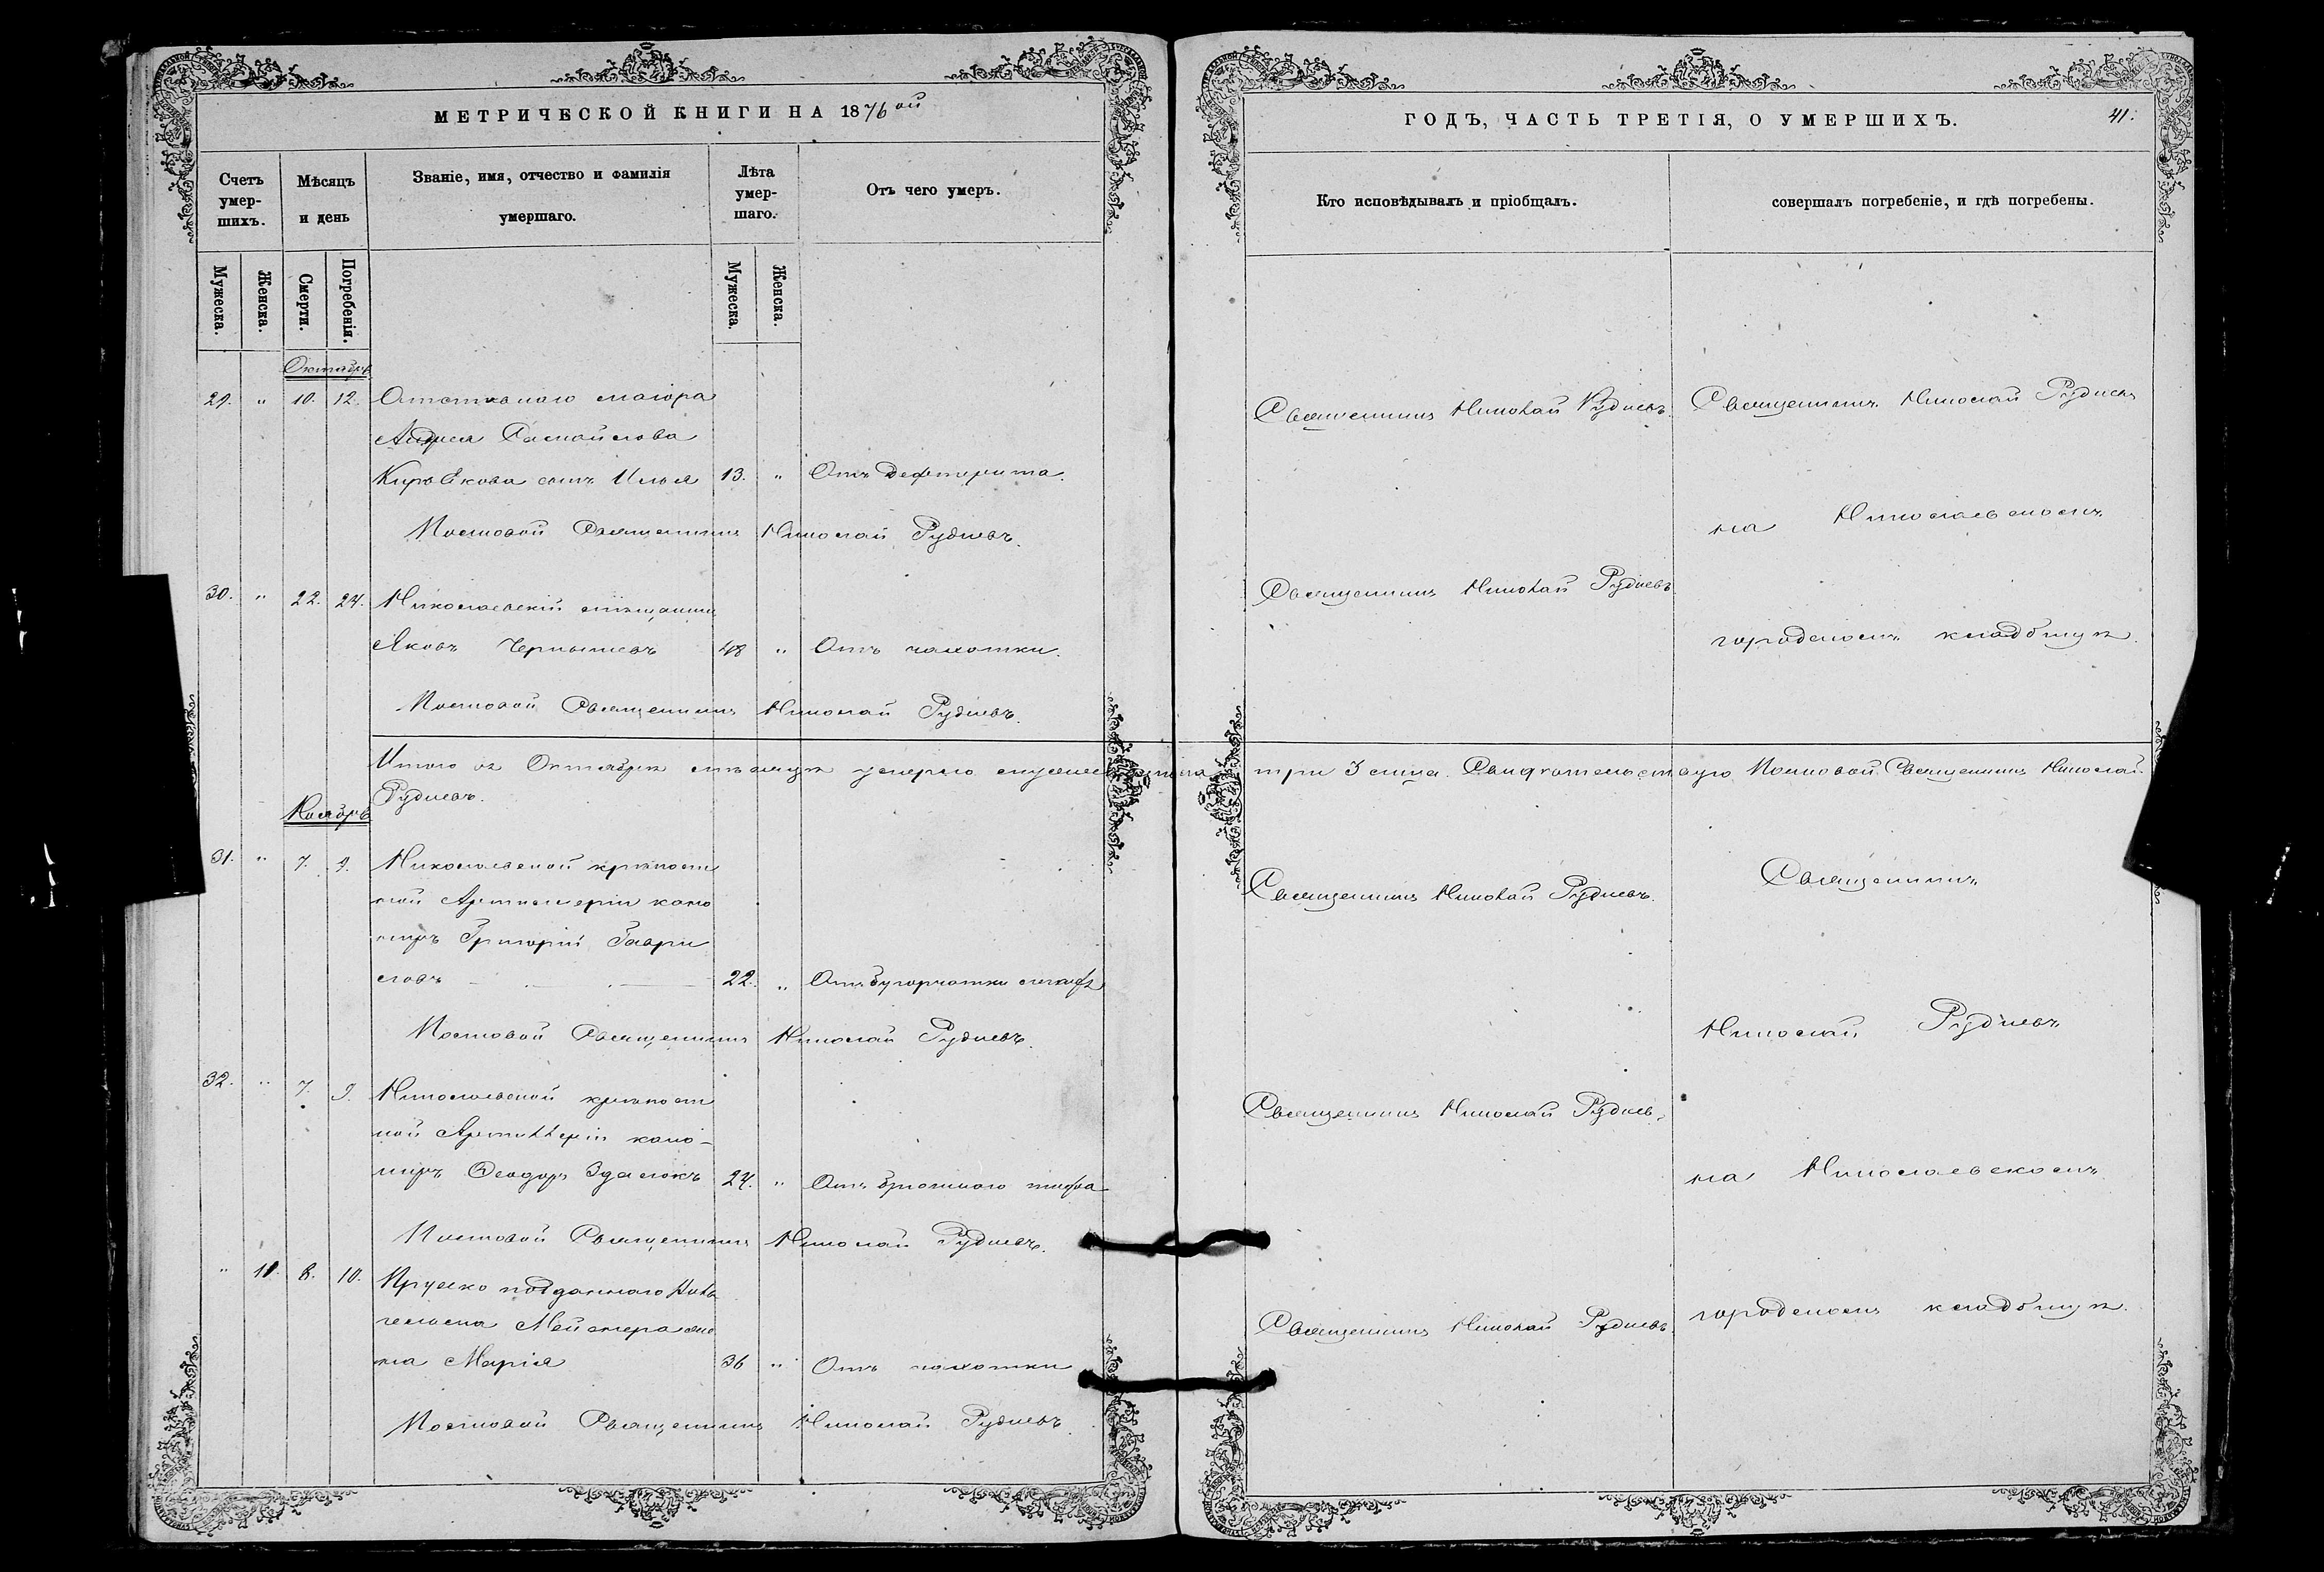 МЕТРИЧЕСКОЙ КНИГИ НА 1876ой
Счетъ умер- шихъ.
Мѣсяцъ и день
Званіе, имя, отчество и фамилія умершаго.
Лѣта умер- шаго.
Отъ чего умеръ.
Мужеска.
Женска.
Смерти.
Погребенія.
Мужеска.
Женска.
Октябрь
29. " 10. 12. Отставного маіора
Андрея
сынъ Илья 13. " Отъ дефтерита.
Приходской Священникъ Николай Рудневъ.
30. " 22. 24. Николаевскій мѣщанинъ
Яковъ Чернышевъ 48 " Отъ чахотки.
Священникъ Николай Рудневъ.
Итого въ Октябрѣ мѣсяцѣ умерло мужеска пола
Рудневъ.
Ноябрь
31. " 7. 9. Николаевской крѣпост
ной Артиллеріи кано
ниръ Григорій Гаври
ловъ 22. " Отъ бугорчатки легкихъ
Священникъ Николай Рудневъ.
32. " 7. 9. Николаевской крѣпост
ной Артиллеріи кано-
ниръ Ѳеодоръ 24. " Отъ брюшного тифа
Священникъ Николай Рудневъ.
" 11. 8. 10. Прусско подданного
Мейснера же
на Марія 36 " Отъ чахотки
Священникъ Николай Рудневъ.
ГОДЪ, ЧАСТЬ ТРЕТІЯ, О УМЕРШИХЪ.
41.
Кто исповѣдывалъ и пріобщалъ.
совершалъ погребеніе, и гдѣ погребены.
Священникъ Николай Рудневъ.
Священникъ Николай Рудневъ
на Николаевскомъ
Священникъ Николай Рудневъ
городскомъ кладбищѣ.
три 3 лица. Свидѣтельствую Священникъ Николай
Священникъ Николай Рудневъ.
Священникъ
Николай Рудневъ
Священникъ Николай Рудневъ.
на Николаевскомъ
Священникъ Николай Рудневъ.
городскомъ кладбищѣ.